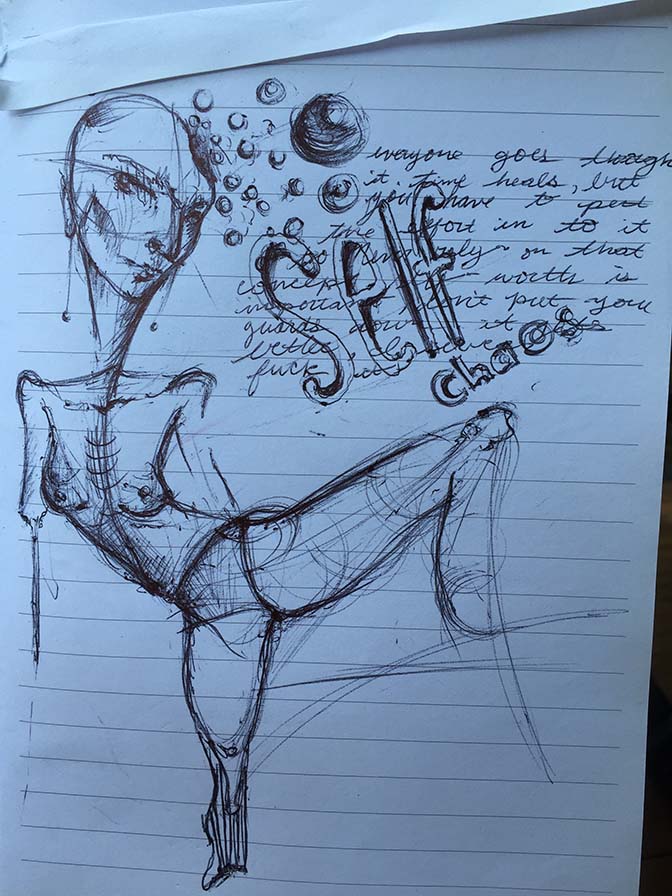 everyone goes through
it, time heals, but
you have to put
the effort in to it
on that
concept worth is
important, don't put your
guards down it gets
better
fuck
SELF
chaos